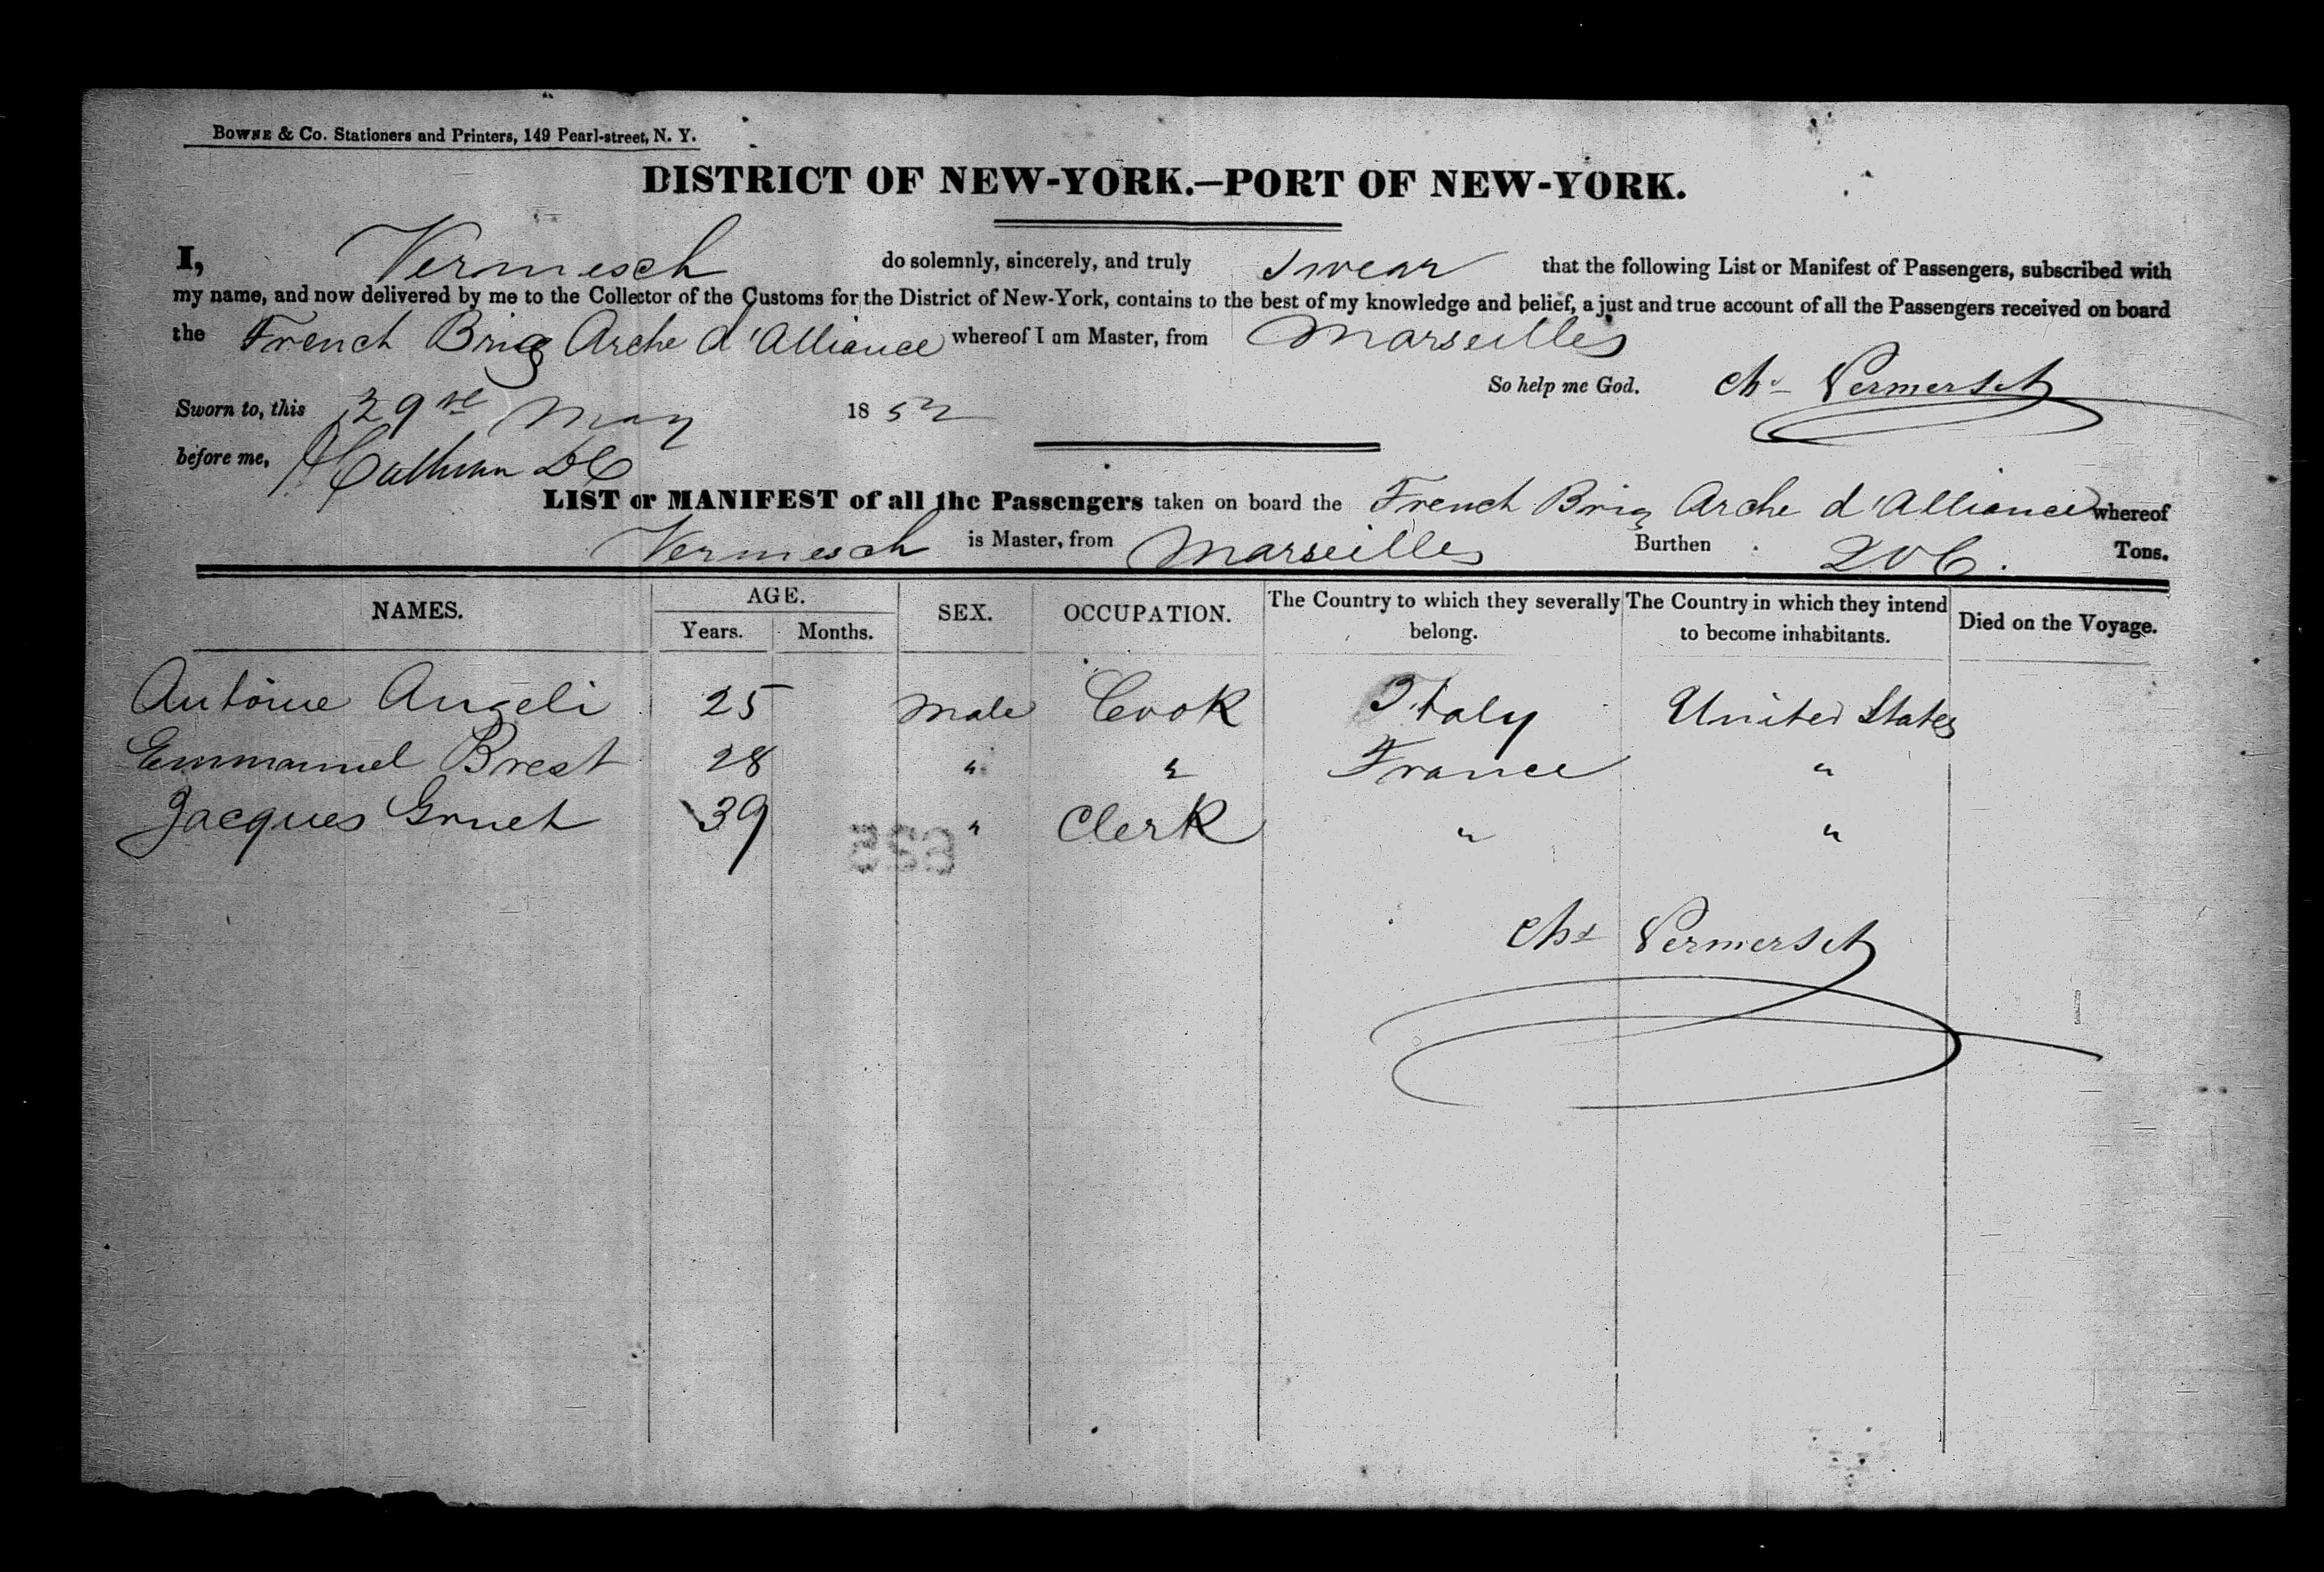 BOWNE & Co. Stationers and Printers, 149 Pearl-street, N. Y.
DISTRICT OF NEW-YORK.—PORT OF NEW-YORK.
I, Vermesch do solemnly, sincerely, and truly swear that the following List or Manifest of Passengers, subscribed with
my name, and now delivered by me to the Collector of the Customs for the District of New-York, contains to the best of my knowledge and belief, a just and true account of all the Passengers received on board
the French Brig Arche d'Alliance whereof I am Master, from Marseilles
So help me God. Chs Vermersch
Sworn to, this 29 May 1852
before me, Calhoun DC
LIST or MANIFEST of all the Passengers taken on board the French Brig Arche d'Alliance whereof
Vermesch is Master, from Marseilles Burthen 206. Tons.
NAMES. AGE. SEX. OCCUPATION. The Country to which they severally belong. The Country in which they intend to become inhabitants. Died on the Voyage.
Years. Months.
Antoine Angeli 25 Male Cook Italy United States
Emmanuel Brest 28 " " France "
Jacques Gruet 39 " Clerk " "
Chs Vermersch